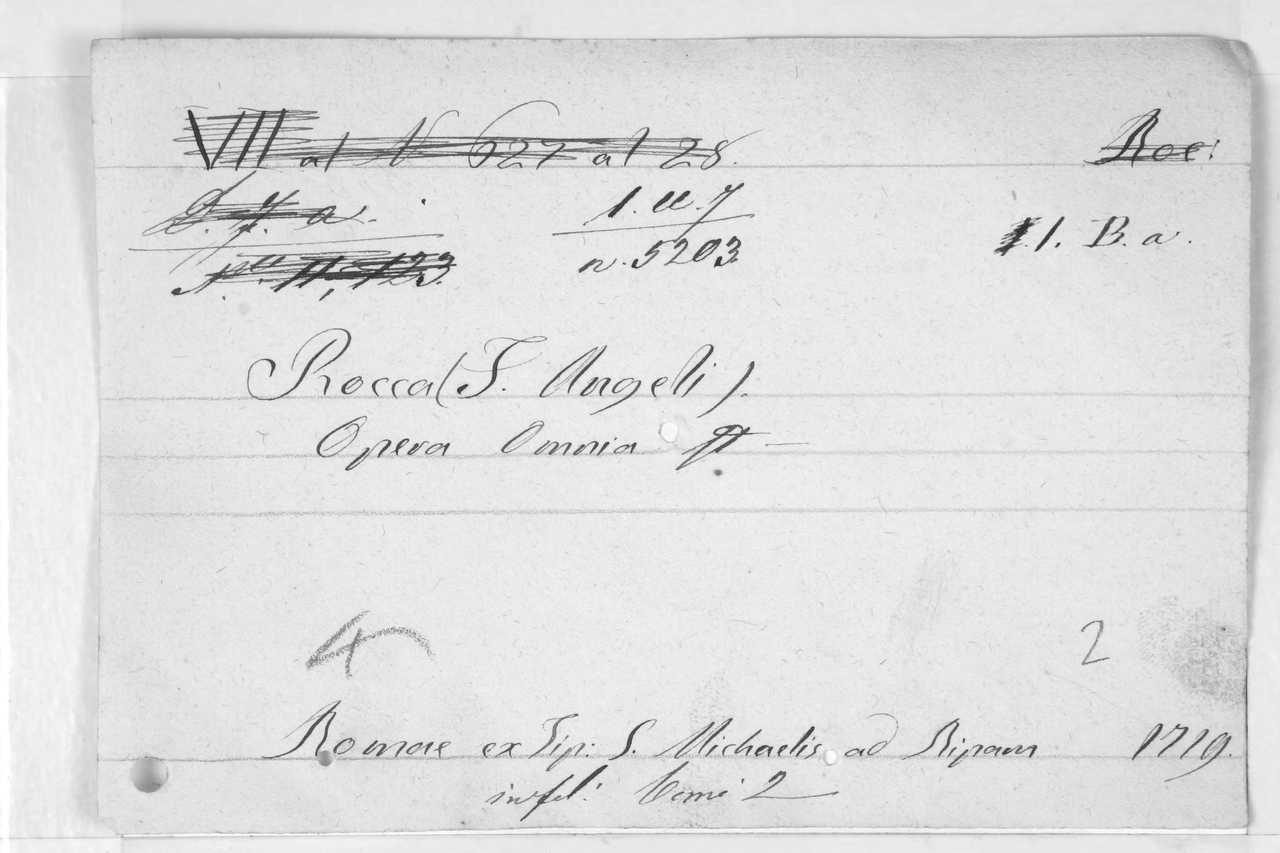 VII al N 627 al 28. Roc:
1.u.7
n. 5203 1. B. a.
Rocca (F. Angeli).
Opera Omnia
4 2
Romae ex Tip: S. Michaelis ad Ripam 1719.
in fol: Tomi 2